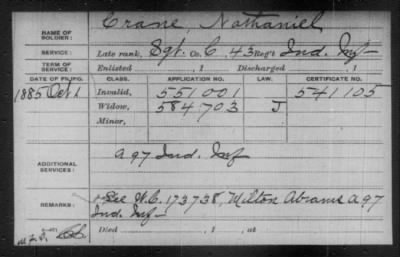 Crane, Nathaniel
NAME OF SOLDIER:
SERVICE: Late rank, Sgt. Co. C, 43 Reg't Ind. Inf-
TERM OF SERVICE: Enlisted , 1 Discharged , 1
DATE OF FILING. CLASS. APPLICATION NO. LAW. CERTIFICATE NO.
1885 Oct 1 Invalid, 551001 541105
Widow, 584703 J
Minor,
ADDITIONAL SERVICES: A 97 Ind. Inf
REMARKS: See W.C. 173738, Milton Abrams A 97
Ind. Inf-
Died , 1 , at